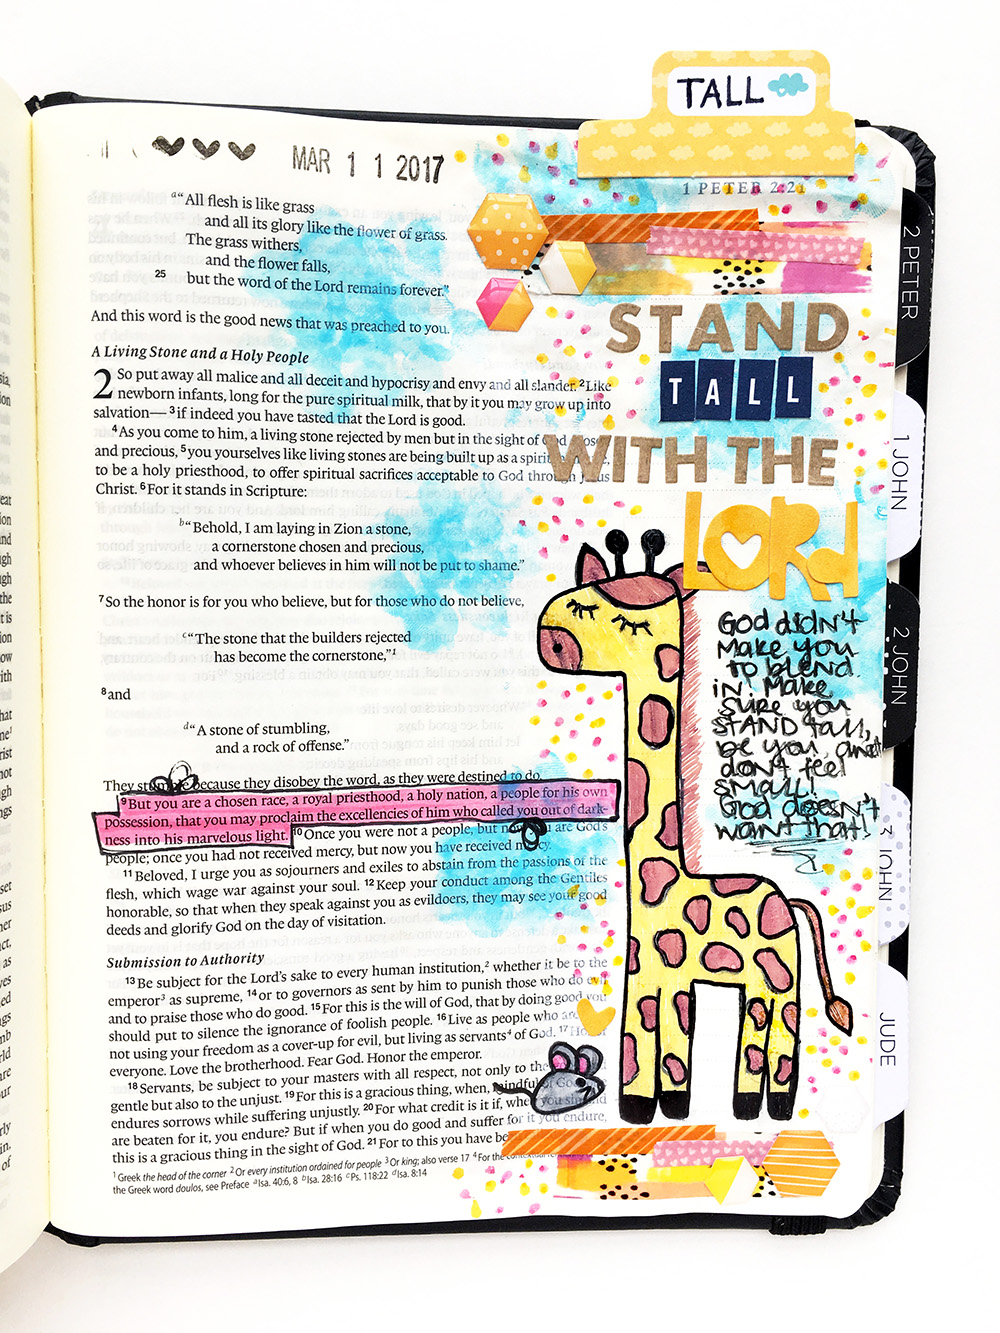 TALL
MAR 1 1 2017
1 PETER 2:21
a“ “All flesh is like grass
and all its glory like the flower of grass.
The grass withers,
and the flower falls,
25 but the word of the Lord remains forever.”
And this word is the good news that was preached to you.
A Living Stone and a Holy People
2 So put away all malice and all deceit and hypocrisy and envy and all slander. 2Like
newborn infants, long for the pure spiritual milk, that by it you may grow up into
salvation— 3if indeed you have tasted that the Lord is good.
4As you come to him, a living stone rejected by men but in the sight of God
and precious, 5you yourselves like living stones are being built up as a
to be a holy priesthood, to offer spiritual sacrifices acceptable to God through Jesus
Christ. 6For it stands in Scripture:
b“ “Behold, I am laying in Zion a stone,
a cornerstone chosen and precious,
and whoever believes in him will not be put to shame.”
7So the honor is for you who believe, but for those who do not believe,
c“ “The stone that the builders rejected
has become the cornerstone,”1
8and
d“ “A stone of stumbling,
and a rock of offense.”
They stumble because they disobey the word, as they were destined to do.
9But you are a chosen race, a royal priesthood, a holy nation, a people for his own
possession, that you may proclaim the excellencies of him who called you out of dark-
ness into his marvelous light. 10Once you were not a people, but now you are God's
people; once you had not received mercy, but now you have received mercy.
11Beloved, I urge you as sojourners and exiles to abstain from the passions of the
flesh, which wage war against your soul. 12Keep your conduct among the Gentiles
honorable, so that when they speak against you as evildoers, they may see your good
deeds and glorify God on the day of visitation.
Submission to Authority
13Be subject for the Lord's sake to every human institution,2 whether it be to the
emperor3 as supreme, 14or to governors as sent by him to punish those who do evil
and to praise those who do good. 15For this is the will of God, that by doing good you
should put to silence the ignorance of foolish people. 16Live as people who are
not using your freedom as a cover-up for evil, but living as servants4 of God. 17Honor
everyone. Love the brotherhood. Fear God. Honor the emperor.
18Servants, be subject to your masters with all respect, not only to the
gentle but also to the unjust. 19For this is a gracious thing, when, mindful of God,
endures sorrows while suffering unjustly. 20For what credit is it if, when you sin and
are beaten for it, you endure? But if when you do good and suffer for it you endure,
this is a gracious thing in the sight of God. 21For to this you have be
1 Greek the head of the corner 2 Or every institution ordained for people 3 Or king; also verse 17 4 For the contextual
the Greek word doulos, see Preface a Isa. 40:6, 8 b Isa. 28:16 c Ps. 118:22 d Isa. 8:14
STAND
TALL
WITH THE
LORd
God didn't
make you
to blend
in. Make
sure you
STAND tall,
be you, and
don't feel
small!
God doesn't
want that!
2 PETER
1 JOHN
2 JOHN
3 JOHN
JUDE